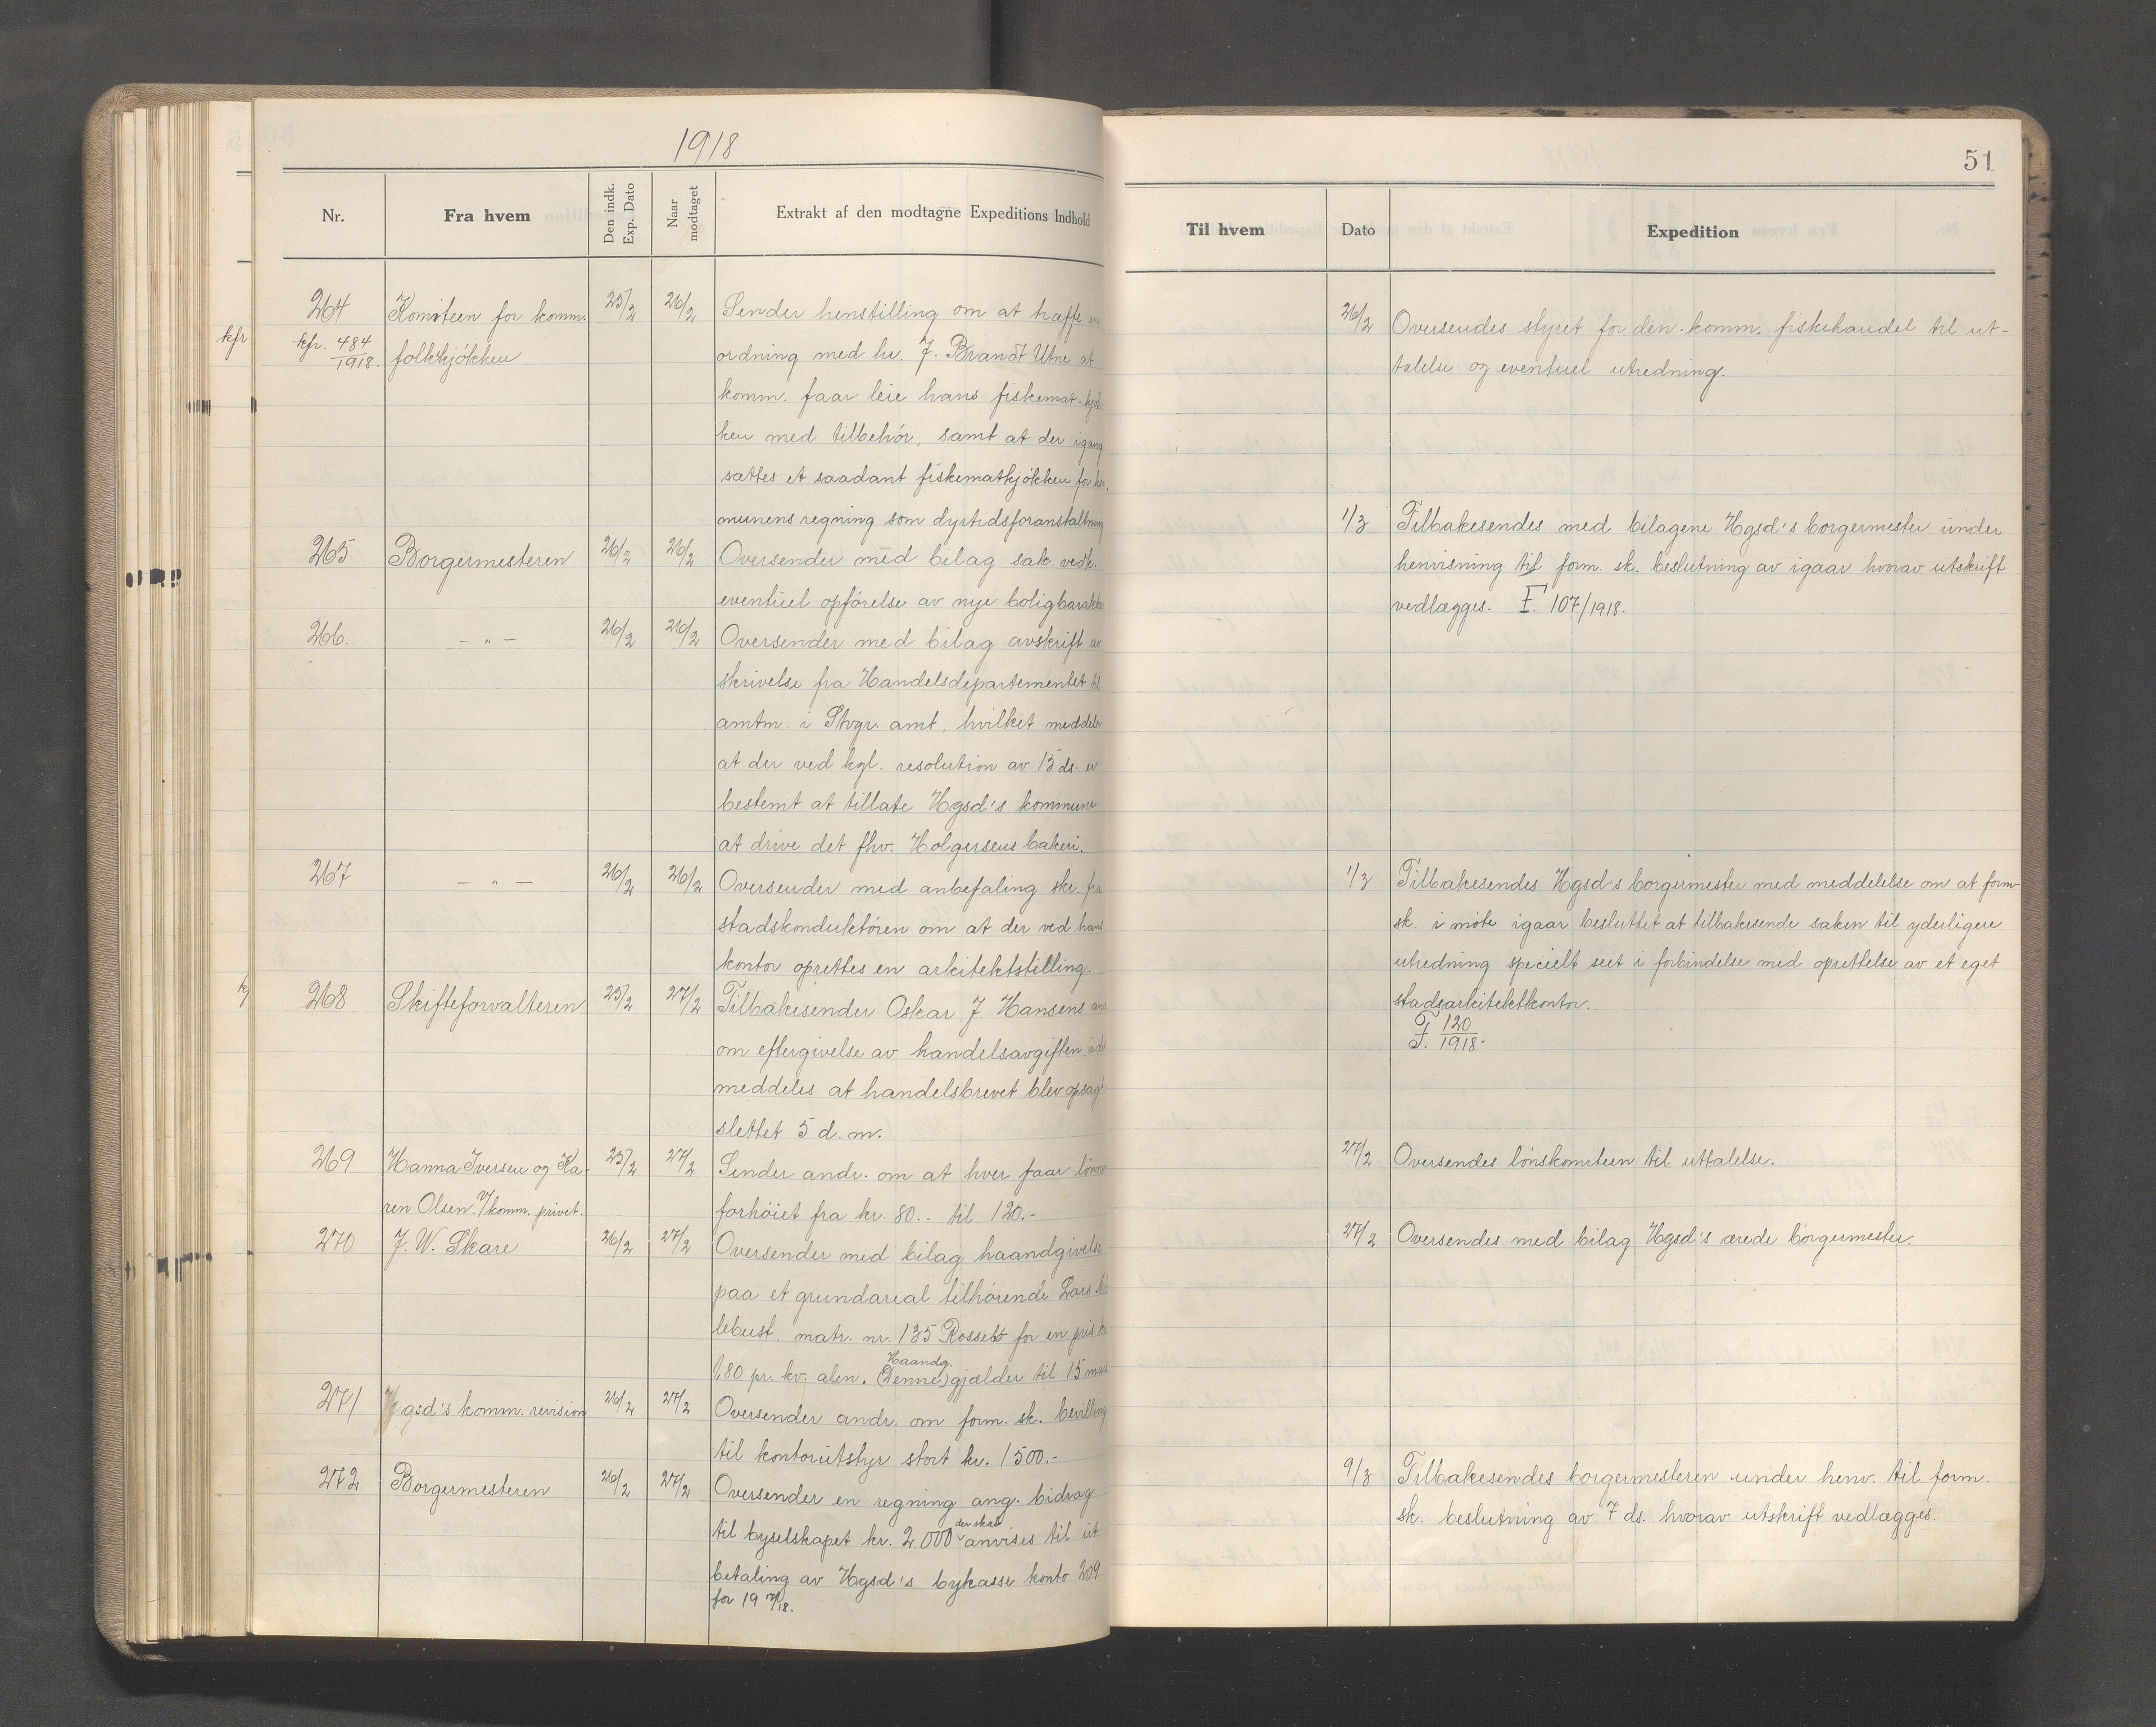 1918
Nr.
Fra hvem
Den indk. Exp. Dato
Naar modtaget
Extrakt af den modtagne Expeditions Indhold
kfr
264
kfr. 484/1918.
Komiteen for komm.
folkekjökken
25/2
26/2
Sender henstilling om at træffe en
ordning med hr. J. Brandt Utne at
komm. faar leie hans fiskemat-kjök-
ken med tilbehör, samt at der igang
sættes et saadant fiskematkjökken for kom.
munens regning som dyrtidsforanstaltning
265
Borgermesteren
26/2
26/2
Oversender med bilag sak vedk.
eventuel opförelse av nye boligbarakker
266.
— „ —
26/2
26/2
Oversender med bilag avskrift av
skrivelse fra Handelsdepartementet til
amtm. i Stvgr. amt, hvilket meddeler
at der ved kgl. resolution av 15 ds. er
bestemt at tillate Hgsd's kommune
at drive det fhv. Holgersens bakeri.
267
— „ —
26/2
26/2
Oversender med anbefaling skr. fra
stadskonduktören om at der ved hans
kontor oprettes en arkitektstilling.
268
Skifteforvalteren
25/2
27/2
Tilbakesender Oskar J. Hansens
om eftergivelse av handelsavgiften
meddeles at handelsbrevet blev opsagt
slettet 5 d. m.
269
Hanna Iversen og Ka-
ren Olsen v/komm. privet.
25/2
27/2
Sender andr. om at hver faar lönnen
forhöiet fra kr. 80.- til 120.-
270
J. W. Skare
26/2
27/2
Oversender med bilag haandgivelse
paa et grundareal tilhörende Lars
lebust, matr. nr. 135 Rossebö for en pris kr.
1,80 pr. kv. alen. (Denne) Haandg. gjælder til 15 mars
271
Hgsd's komm. revision
26/2
27/2
Oversender andr. om form. sk. bevilling
til kontorutstyr stort kr. 1500.-
272
Borgermesteren
26/2
27/2
Oversender en regning ang. bidrag
til byselskapet kr. 2.000 der skal anvises til ut
betaling av Hgsd's bykasse konto 209
for 19 17/18.
51
Til hvem
Dato
Expedition
26/2
Oversendes styret for den komm. fiskehandel til ut-
talelse og eventuel utredning.
1/3
Tilbakesendes med bilagene Hgsd's borgermester under
henvisning til form. sk. beslutning av igaar hvorav utskrift
vedlægges. F. 107/1918.
1/3
Tilbakesendes Hgsd's borgermester med meddelelse om at form
sk. i möte igaar besluttet at tilbakesende saken til yderligere
utredning specielt seet i forbindelse med oprettelse av et eget
stadsarkitektkontor.
F. 120/1918.
27/2
Oversendes lönskomiteen til uttalelse.
27/2
Oversendes med bilag Hgsd's ærede borgermester.
9/3
Tilbakesendes borgermesteren under henv. til form.
sk. beslutning av 7 ds. hvorav utskrift vedlægges.